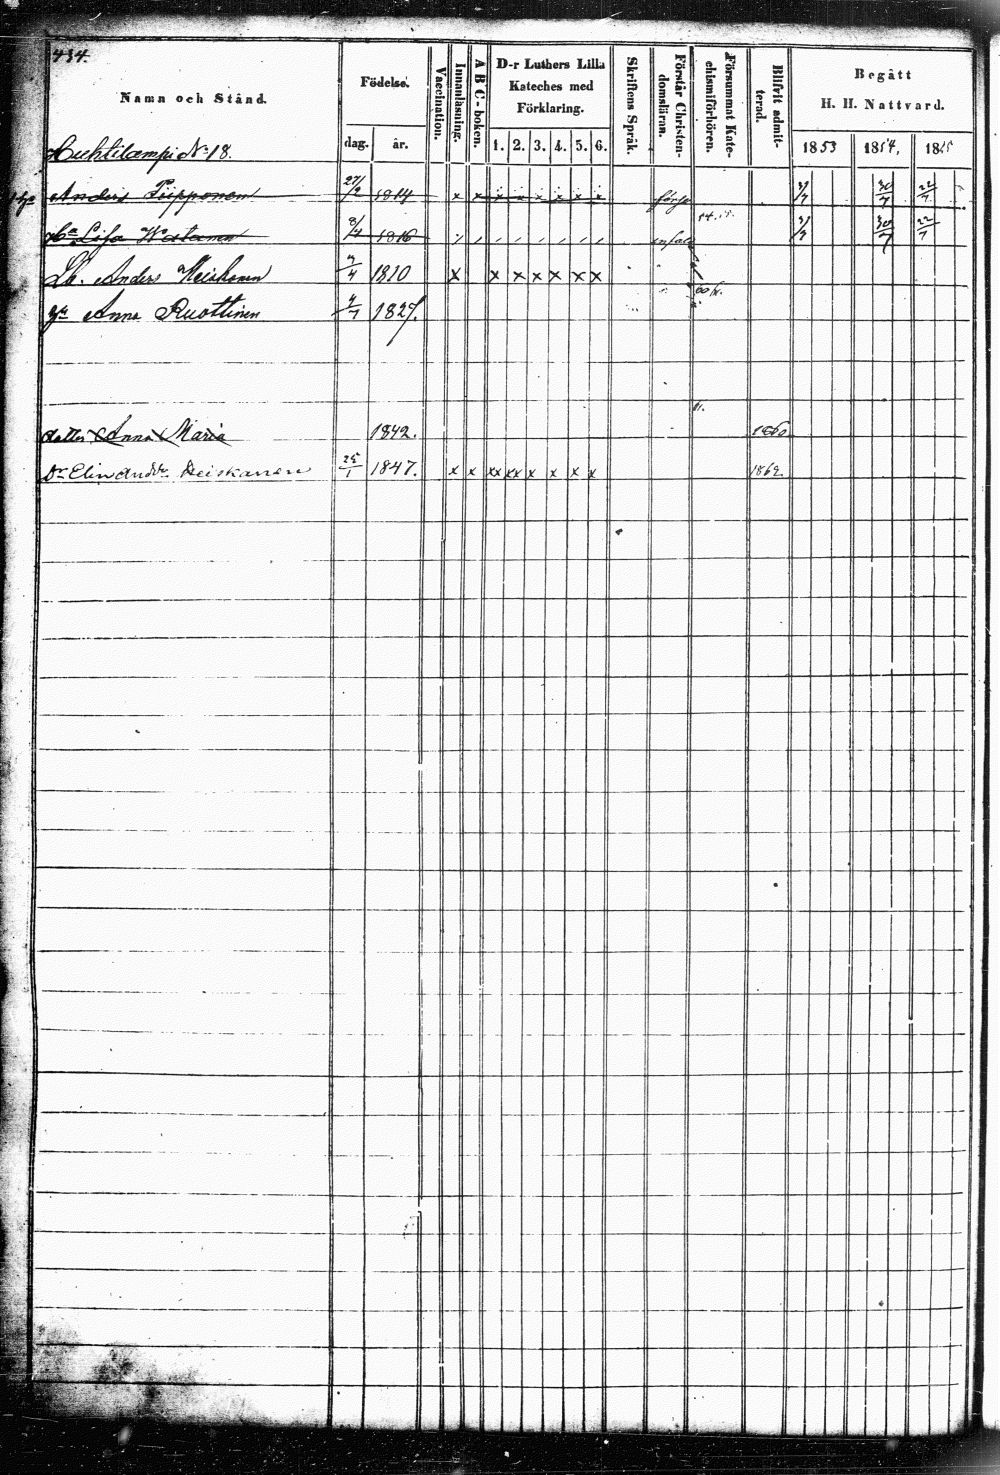 434.
Namn och Stånd.
Födelse.
dag. år.
Vaccination.
Innanläsning.
A B C-boken.
D-r Luthers Lilla
Kateches med
Förklaring.
1. 2. 3. 4. 5. 6.
Skriftens Språk.
Förstår Christen-
domsläran.
Försummat Kate-
chismiförhören.
Blifvit admit-
terad.
Begått
H. H. Nattvard.
1853 1854, 1855
Huhtilampi No 18.
Anders Piipponen 27/2 1814 x x x x x x x x förs 3/7 30/7 22/7
Hu Lisa 8/4 1816 3/7 30/7 22/7
Lh. Anders Heiskanen 1810 x x x x x x x
Anna Ruottinen 1827.
dotter Anna Maria 1842. 1860
Dr Elin Andsdr Heiskanen 25/1 1847. x x xx xx x x x x 1862